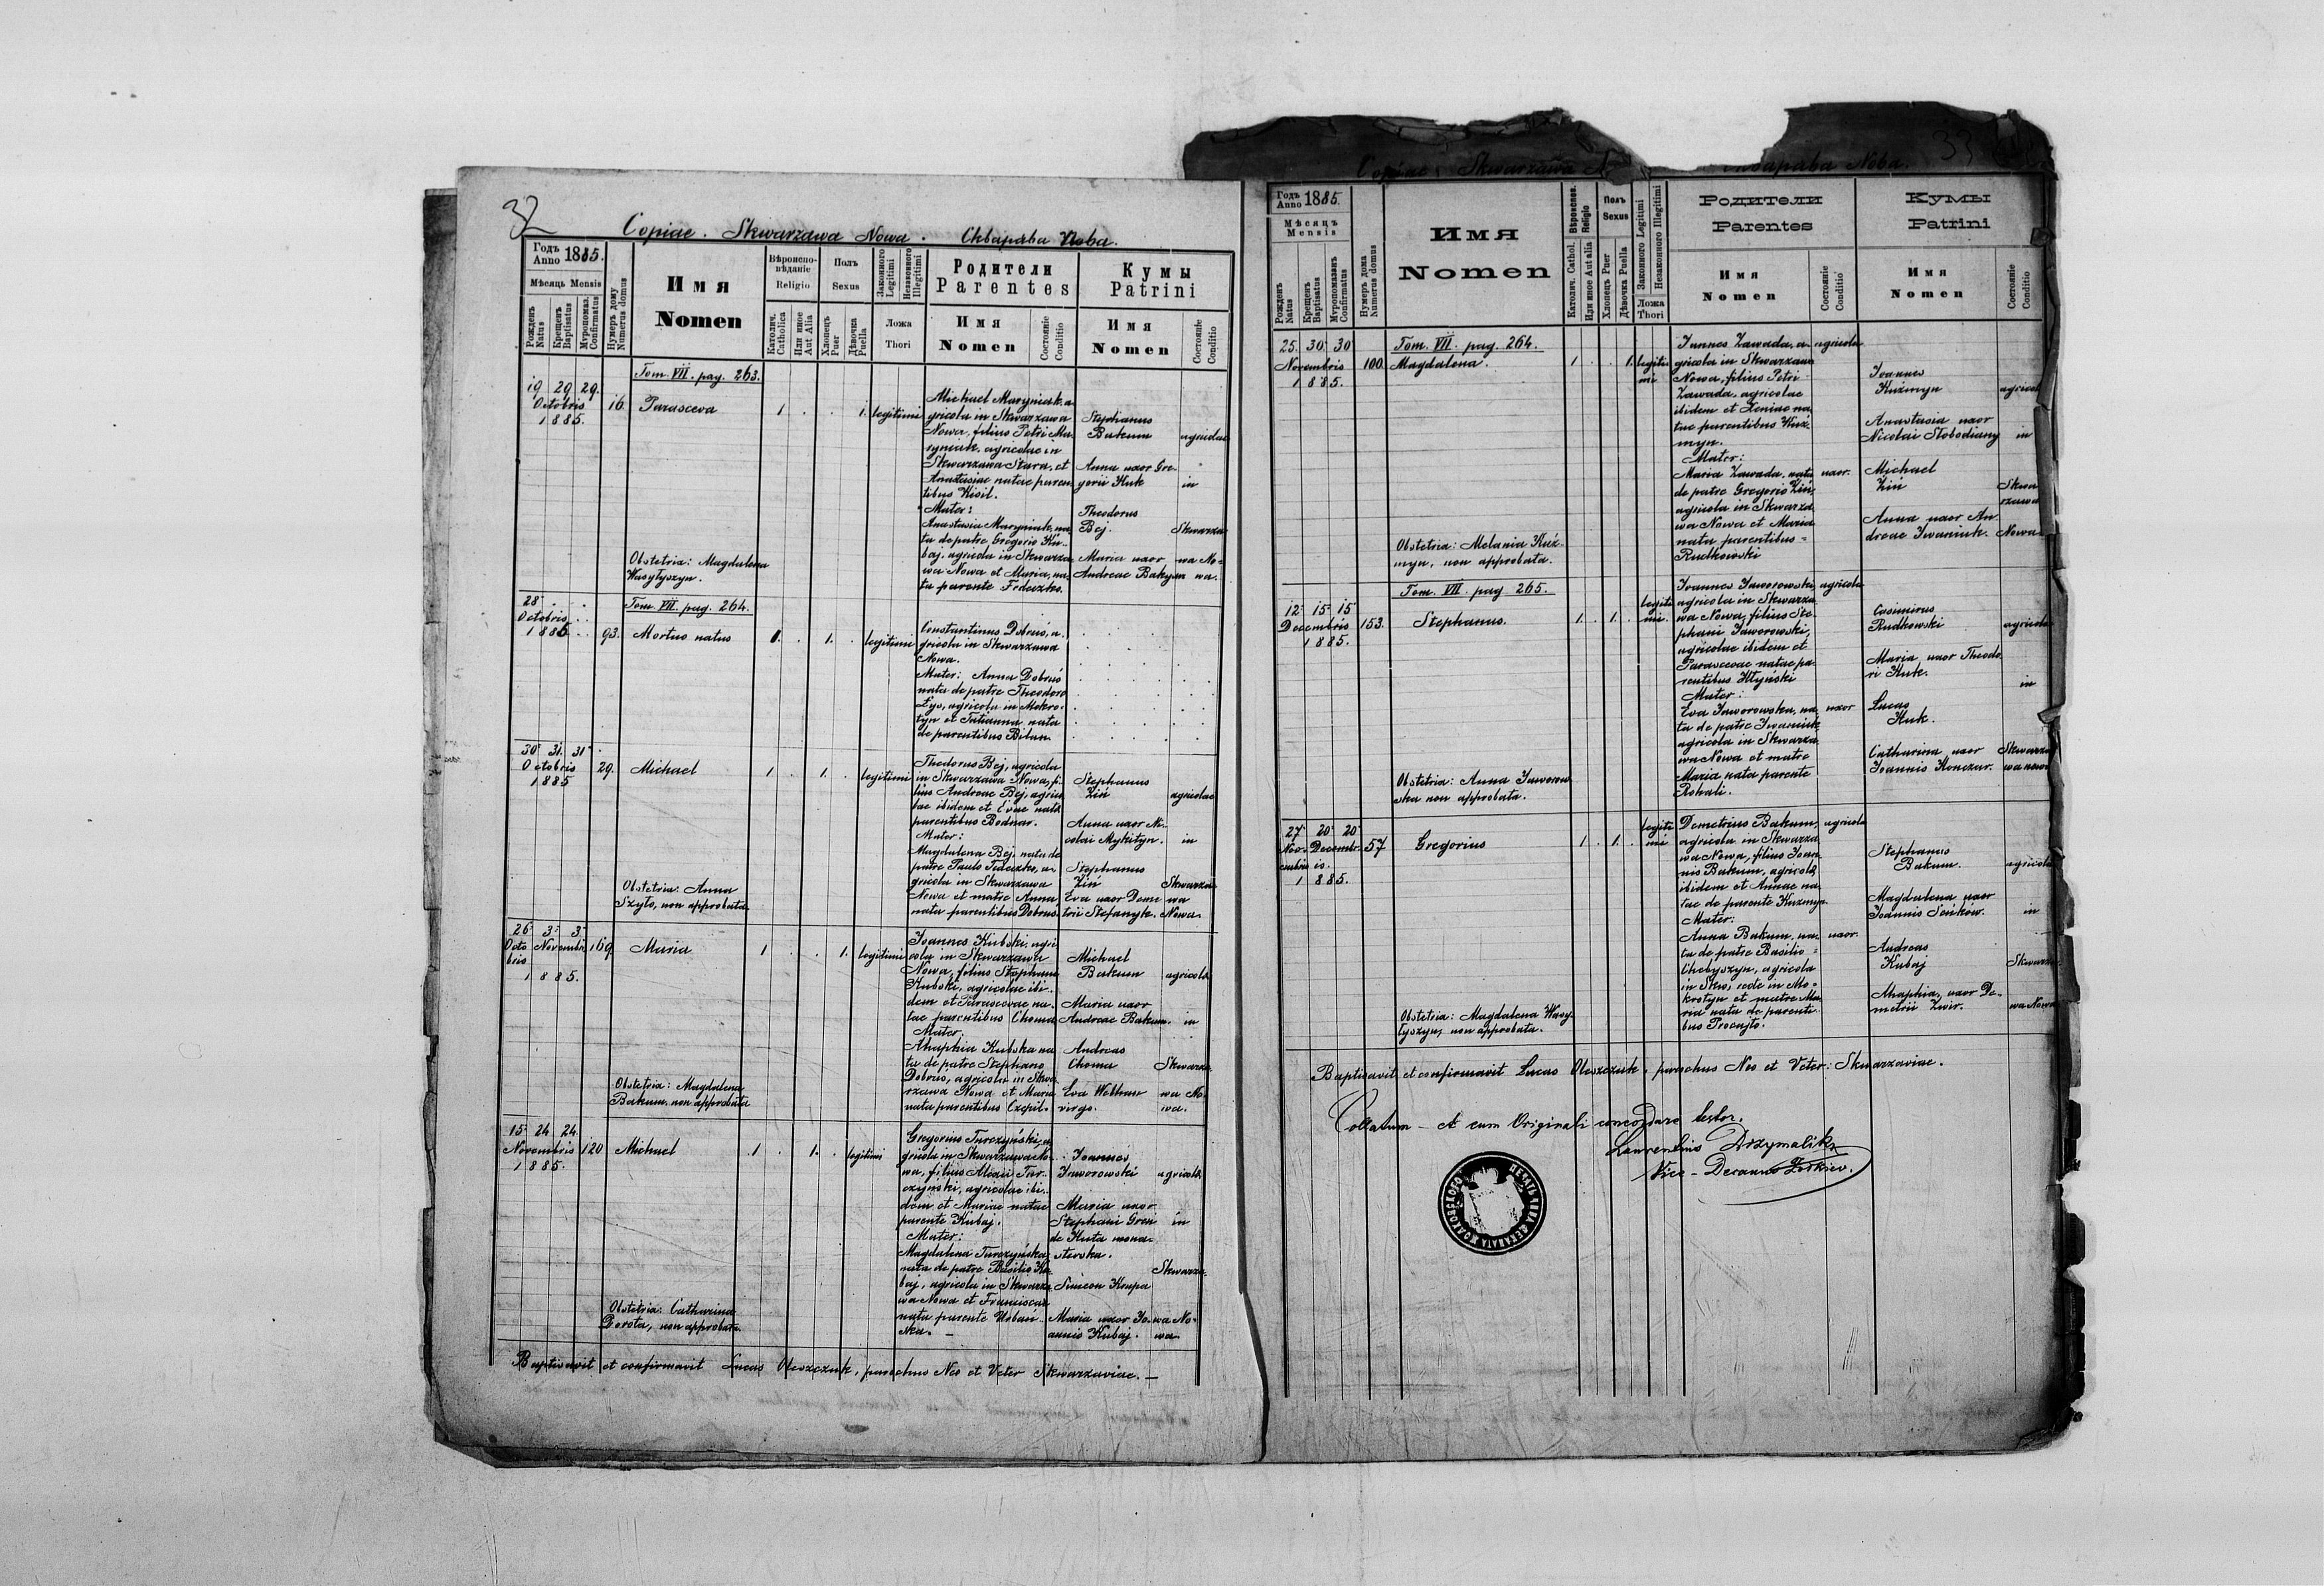 32
Copiae. Skwarzawa Nowa. Скварава Нова.
Годъ Anno 1885.
Мѣсяць Mensis
Рожденъ Natus
Крещенъ Baptisatus
Муропомаз. Confirmatus
Нумеръ дому Numerus domus
Имя
Nomen
Вѣроиспо-
вѣданіе
Religio
Католич. Catholica
Или иное Aut Alia
Полъ
Sexus
Хлопецъ Puer
Дѣвочка Puella
Законного Legitimi
Незаконного Illegitimi
Ложа
Thori
Родители
Parentes
Имя
Nomen
Состояніе Conditio
Кумы
Patrini
Имя
Nomen
Состояніе Conditio
Tom. VII. pag. 263.
19 29 29.
Octobris
1885.
16.
Parasceva
1 . . 1.
legitimi
Michael Maryniak, a-
gricola in Skwarzawa
Nowa, filius Petri Ma-
ryniak, agricolae in
Skwarzawa Stara, et
Anastasiae natae paren
tibus Kisil.
Mater:
Anastasia Maryniak, na
ta de patre Gregorio Ku-
baj, agricola in Skwarza
wa Nowa et Maria, na-
ta parente Fedeczko.
Stephanus
Bakum
Anna uxor Gre-
gorii Kuk
Theodorus
Bej.
Maria uxor
Andreae Bakum
agricolae
in
Skwarza-
wa No-
wa.
Obstetria: Magdalena
Wasyłyszyn.
28
Octobris
1885
Tom. VII. pag. 264.
93.
Mortuo natus
1. . 1. .
legitimi
Constantinus Dobruś, a.
gricola in Skwarzawa
Nowa.
Mater: Anna Dobruś
nata de patre Theodoro
Łys, agricola in Mokro-
tyn et Tatianna nata
de parentibus Bilan.
30 31. 31
Octobris
1885
29.
Michael
1 . 1. .
legitimi
Theodorus Bej, agricola
in Skwarzawa Nowa, fi-
lius Andreae Bej, agrico
lae ibidem et Evae nata
parentibus Bodnar.
Mater:
Magdalena Bej, nata de
patre Paulo Fedeczko, a-
gricola in Skwarzawa
Nowa et matre Anna,
nata parentibus Dobrus.
Stephanus
Ziń
Anna uxor Ni-
colai Mykityn.
Stephanus
Ziń
Eva uxor Deme
trii Stefanyk.
agricolae
in
Skwarza-
wa
Nowa
Obstetria: Anna
Szyło, non approbata
26 3 3
Octo Novembr.
bris
1885.
169.
Maria
1 . . 1.
legitimi
Joannes Kubski, agri
cola in Skwarzawa
Nowa, filius Stephani
Kubski, agricolae ibi-
dem et Parascevae na-
tae parentibus Choma
Mater.
Ahaphia Kubska na
ta de patre Stephano
Dobrus, agricola in Skwa
rzawa Nowa et Maria
nata parentibus Czepil.
Michael
Bakum
Maria uxor
Andreae Bakum.
Andreas
Choma
virgo.
agricolae
in
Skwarza-
wa No-
wa.
Obstetria: Magdalena
Bakum, non approbata
15 24 24
Novembris
1885.
120
Michael
1 . 1. .
legitimi
Gregorius Turczyński, a
gricola in Skwarzawa No-
wa, filius Alexii Tur-
czyński, agricolae ibi-
dem et Mariae natae
parente Kubaj.
Mater:
Magdalena Turczyńska
nata de patre Basilio Ku
baj, agricola in Skwarza
wa Nowa et Francisca
nata parente Urbań-
ska. —
Joannes
Jaworowski
Maria uxor
Stephani Gren
de Huta mona-
sterska.
Simeon Krupa
Maria uxor Jo-
annis Kubaj.
agricolae
in
Skwarza-
wa No-
wa
Obstetria: Catharina
Dorota, non approbata
Baptisavit et confirmavit Lucas Oleszczuk, parochus Neo et Veter Skwarzaviae. —
33
Copiae Skwarzawa N Скварава Нова.
Годъ Anno 1885.
Мѣсяцъ
Mensis
Рожденъ Natus
Крещенъ Baptisatus
Муропомазанъ Confirmatus
Нумеръ дома Numerus domus
Имя
Nomen
Вѣроиспов. Religio
Католич. Cathol.
Или иное Aut alia
Полъ
Sexus
Хлопецъ Puer
Дѣвочка Puella
Законного Legitimi
Незаконного Illegitimi
Ложа
Thori
Родители
Parentes
Имя
Nomen
Состояніе Conditio
Кумы
Patrini
Имя
Nomen
Состояніе Conditio
25. 30. 30
Novembris
1885.
Tom. VII. pag. 264.
100.
Magdalena.
1 . . 1.
legiti
mi
Joannes Zawada, a-
gricola in Skwarzawa
Nowa, filius Petri
Zawada, agricolae
ibidem et Xeniae na
tae parentibus Kuź
myn.
Mater:
Maria Zawada, nata
de patre Gregorio Ziń,
agricola in Skwarza
wa Nowa et Maria
nata parentibus =
Rudkowski
agricola
uxor.
Joannes
Kuźmyn
Anastasia uxor
Nicolai Słobodiany
Michael
Ziń
Anna uxor An
dreae Iwaniuk.
agricol
in
Skwa
rzawa
Nowa
Obstetria: Melania Kuź-
myn, non approbata.
Tom. VII. pag 265.
12 15 15
Decembris
1885.
153.
Stephanus.
1. . 1. .
legiti
mi.
Joannes Jaworowski,
agricola in Skwarza
wa Nowa, filius Ste
phani Jaworowski,
agricolae ibidem et
Parascevae natae pa
rentibus Hłyński
Mater:
Eva Jaworowska, na
ta de patre Iwaniuk
agricola in Skwarza
wa Nowa et matre
Maria nata parente
Rohali.
agricola
uxor
Casimirus
Rudkowski
Maria, uxor Theodo
ri Kuk.
Lucas
Kuk.
Catharina uxor
Joannis Konczar.
agricola
in
Skwarza
wa nowa
Obstetria: Anna Jaworow
ska non approbata.
27 20 20
Nov- Decembr.
embris is.
1885.
57
Gregorius
1. . 1. .
legiti
mi
Demetrius Bakum,
agricola in Skwarza
wa Nowa, filius Joan
nis Bakum, agricola
ibidem et Annae na
tae de parente Kuzmyn
Mater:
Anna Bakum, na-
ta de patre Basilio =
Chebyszyn, agricola
in Skw, sede in Mo-
krotyn et matre Ma
ria nata de parenti-
bus Procajło.
agricola
uxor.
Stephanus
Bakum.
Magdalena uxor
Joannis Seńków.
Andreas
Kubaj
Ahaphia, uxor De-
metrii Zwir.
agricola
in
Skwarza
wa Nowa
Obstetria: Magdalena Wasy
łyszyn, non approbata.
Baptisavit et confirmavit Lucas Oleszczuk, parochus Neo et Veter: Skwarzaviae.
Collatum et cum Originali concordare testor.
Laurentius Drzymalik
Vice-Decanus Zolkiev.